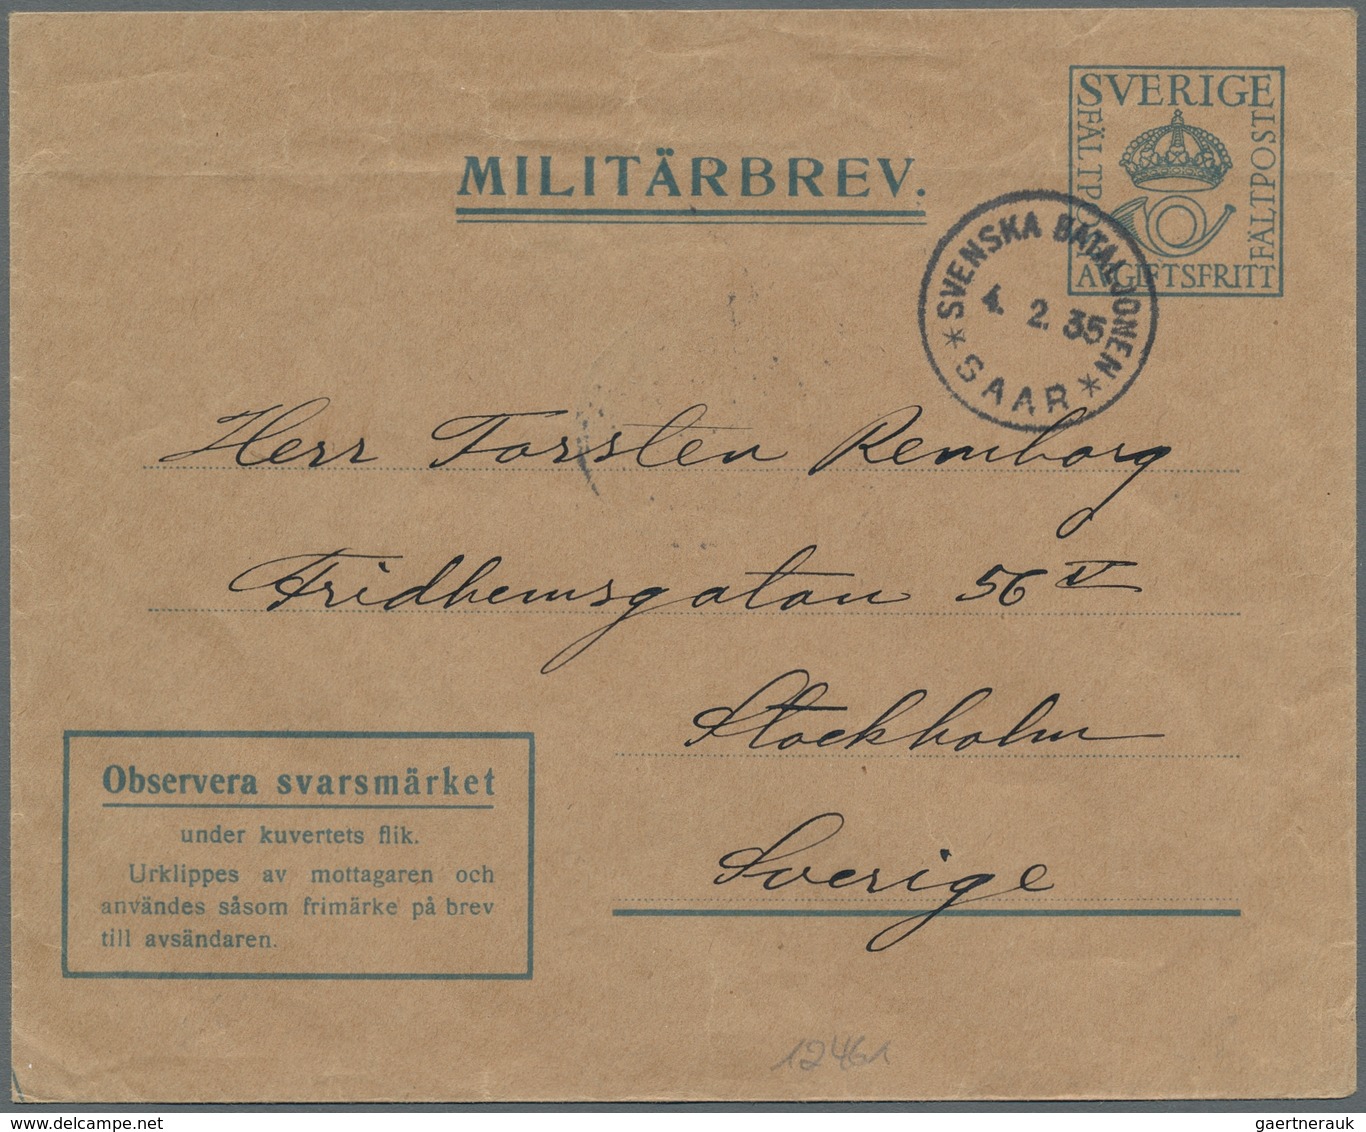 SVERIGE
FÄLTPOST
FÄLTPOST
AVGIFTSFRITT
MILITÄRBREV.
SVENSKA BATALJONEN
4. 2. 35
* SAAR *
Herr Torsten Remborg
Fridhemsgatan 56 V
Stockholm
Sverige
Observera svarsmärket
under kuvertets flik.
Urklippes av mottagaren och
användes såsom frimärke på brev
till avsändaren.
12461
gaertnerauk@delcampe.net